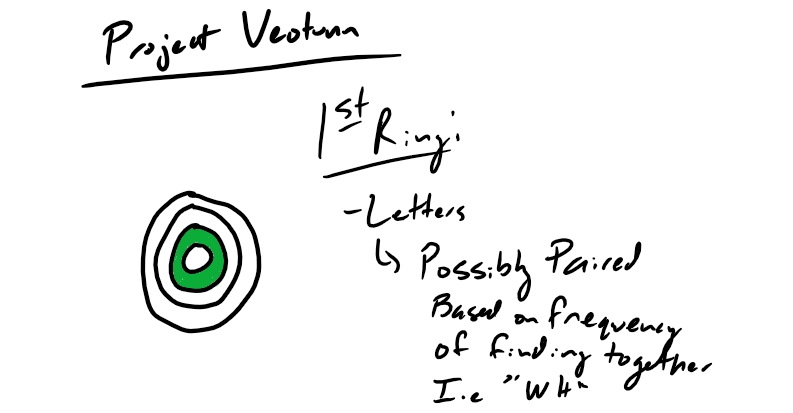 Project Veotunn
1st Ring:
- Letters
↳ Possibly Paired
Based on frequency
of finding together
I.e "WH"